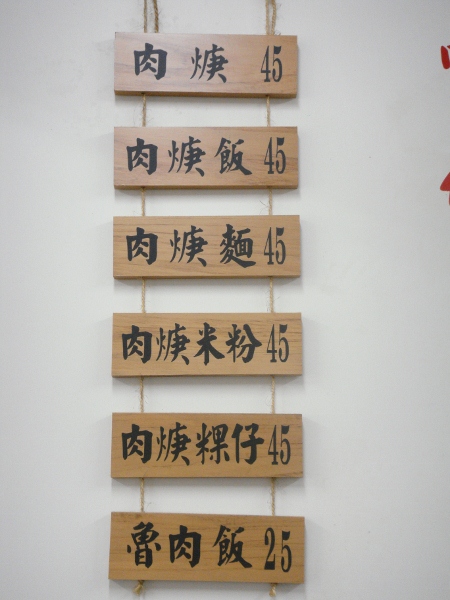 肉焿 45
肉焿飯 45
肉焿麵 45
肉焿米粉 45
肉焿粿仔 45
魯肉飯 25